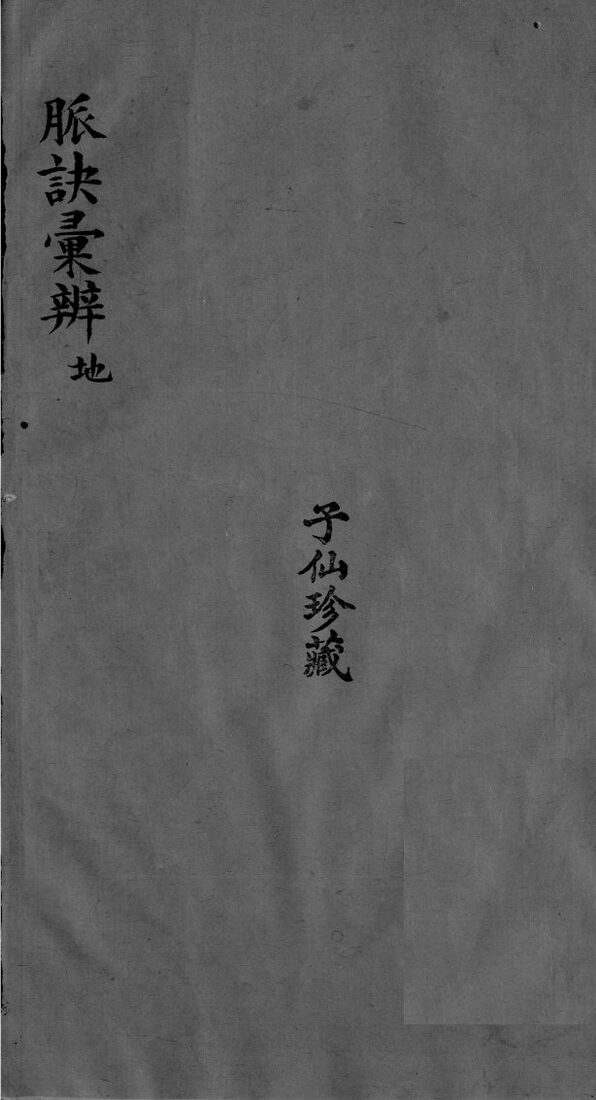 脈訣彙辨 地
子仙珍藏